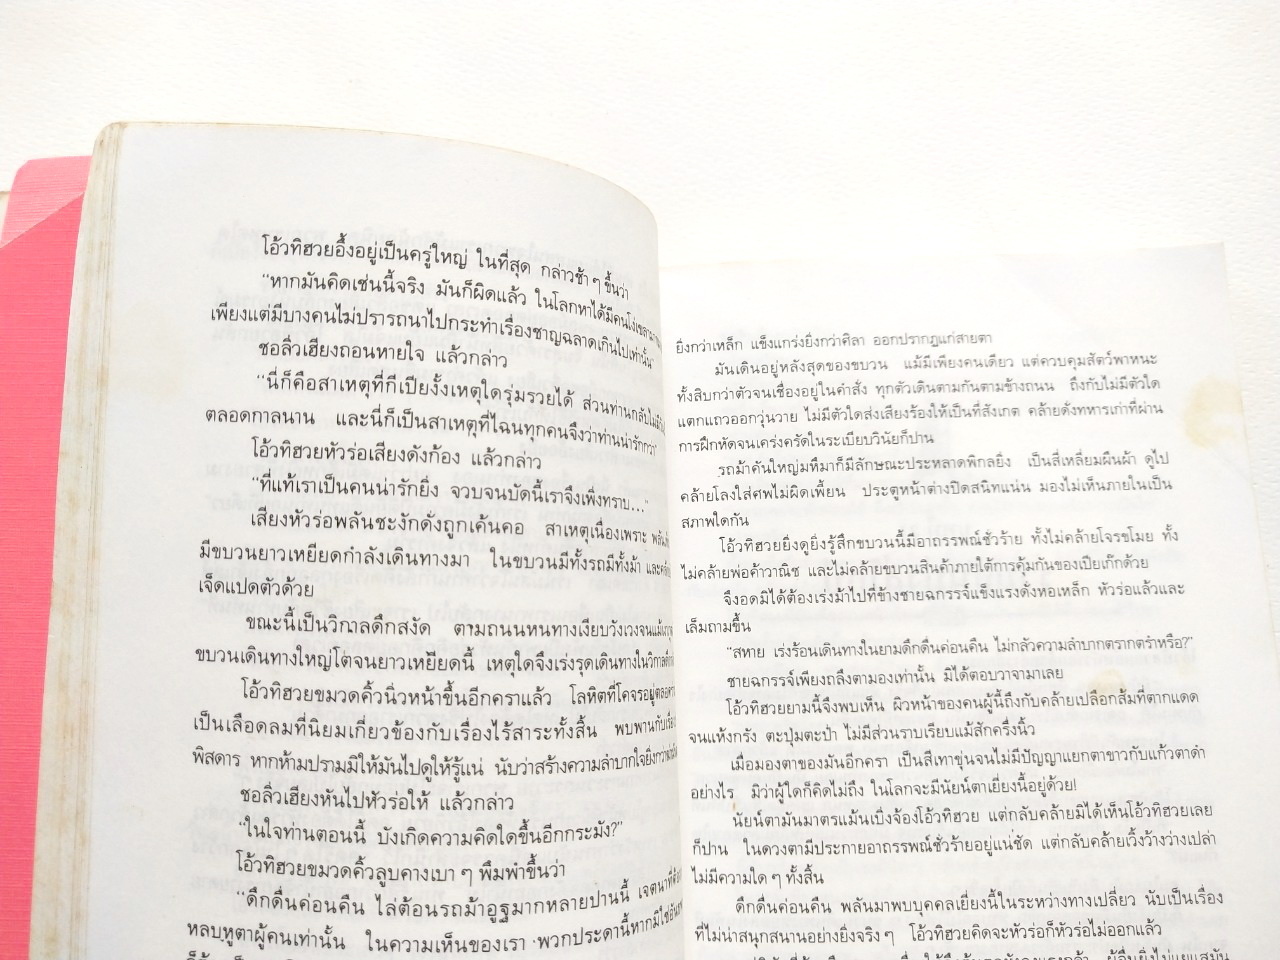 โอ้วทิฮวยอึ้งอยู่เป็นครู่ใหญ่ ในที่สุด กล่าวช้า ๆ ขึ้นว่า
“หากมันคิดเช่นนี้จริง มันก็ผิดแล้ว ในโลกหาได้มีคนโง่เขลา
เพียงแต่มีบางคนไม่ปรารถนาไปกระทำเรื่องชาญฉลาดเกินไปเท่านั้น”
ชอลิ่วเฮียงถอนหายใจ แล้วกล่าว
“นี่ก็คือสาเหตุที่กีเปียงงั้งเหตุใดรุ่มรวยได้ ส่วนท่านกลับไม่มี
ตลอดกาลนาน และนี่ก็เป็นสาเหตุที่ไฉนทุกคนจึงว่าท่านน่ารักกว่า”
โอ้วทิฮวยหัวร่อเสียงดังก้อง แล้วกล่าว
“ที่แท้เราเป็นคนน่ารักยิ่ง จวบจนบัดนี้เราจึงเพิ่งทราบ...”
เสียงหัวร่อพลันชะงักดั่งถูกเค้นคอ สาเหตุเนื่องเพราะ
มีขบวนยาวเหยียดกำลังเดินทางมา ในขบวนมีทั้งรถมีทั้งม้า
เจ็ดแปดตัวด้วย
ขณะนี้เป็นวิกาลดึกสงัด ตามถนนหนทางเงียบวังเวงจน
ขบวนเดินทางใหญ่โตจนยาวเหยียดนี้ เหตุใดจึงเร่งรุดเดินทางในวิกาล
โอ้วทิฮวยขมวดคิ้วนิ่วหน้าขึ้นอีกคราแล้ว โลหิตที่โคจรอยู่
เป็นเลือดลมที่นิยมเกี่ยวข้องกับเรื่องไร้สาระทั้งสิ้น พบพานกับเรื่อง
พิสดาร หากห้ามปรามมิให้มันไปดูให้รู้แน่ นับว่าสร้างความลำบากใจยิ่งกว่า
ชอลิ่วเฮียงหันไปหัวร่อให้ แล้วกล่าว
“ในใจท่านตอนนี้ บังเกิดความคิดใดขึ้นอีกกระมัง?”
โอ้วทิฮวยขมวดคิ้วลูบคางเบา ๆ พึมพำขึ้นว่า
“ดึกดื่นค่อนคืน ไล่ต้อนรถม้าอูฐมากหลายปานนี้ เจตนาที่
หลบหูตาผู้คนเท่านั้น ในความเห็นของเรา พวกประดานี้หากมิใช่
ยิ่งกว่าเหล็ก แข็งแกร่งยิ่งกว่าศิลา ออกปรากฏแก่สายตา
มันเดินอยู่หลังสุดของขบวน แม้มีเพียงคนเดียว แต่ควบคุมสัตว์พาหนะ
ทั้งสิบกว่าตัวจนเชื่องอยู่ในคำสั่ง ทุกตัวเดินตามกันตามข้างถนน ถึงกับไม่มีตัวใด
แตกแถวออกวุ่นวาย ไม่มีตัวใดส่งเสียงร้องให้เป็นที่สังเกต คล้ายดั่งทหารเก่าที่ผ่าน
การฝึกหัดจนเคร่งครัดในระเบียบวินัยก็ปาน
รถม้าคันใหญ่มหึมาก็มีลักษณะประหลาดพิกลยิ่ง เป็นสี่เหลี่ยมผืนผ้า ดูไป
คล้ายโลงใส่ศพไม่ผิดเพี้ยน ประตูหน้าต่างปิดสนิทแน่น มองไม่เห็นภายในเป็น
สภาพใดกัน
โอ้วทิฮวยยิ่งดูยิ่งรู้สึกขบวนนี้มีอาถรรพณ์ชั่วร้าย ทั้งไม่คล้ายโจรขโมย ทั้ง
ไม่คล้ายพ่อค้าวาณิช และไม่คล้ายขบวนสินค้าภายใต้การคุ้มกันของเปียเก๊กด้วย
จึงอดมิได้ต้องเร่งม้าไปที่ข้างชายฉกรรจ์แข็งแรงดั่งหอเหล็ก หัวร่อแล้วและ
เล็มถามขึ้น
“สหาย เร่งร้อนเดินทางในยามดึกดื่นค่อนคืน ไม่กลัวความลำบากตรากตรำหรือ?”
ชายฉกรรจ์เพียงถลึงตามองเท่านั้น มิได้ตอบวาจามาเลย
โอ้วทิฮวยยามนี้จึงพบเห็น ผิวหน้าของคนผู้นี้ถึงกับคล้ายเปลือกส้มที่ตากแดด
จนแห้งกรัง ตะปุ่มตะป่ำ ไม่มีส่วนราบเรียบแม้สักครึ่งนิ้ว
เมื่อมองตาของมันอีกครา เป็นสีเทาขุ่นจนไม่มีปัญญาแยกตาขาวกับแก้วตาดำ
อย่างไร มิว่าผู้ใดก็คิดไม่ถึง ในโลกจะมีนัยน์ตาเยี่ยงนี้อยู่ด้วย!
นัยน์ตามันมาตรแม้นเบิ่งจ้องโอ้วทิฮวย แต่กลับคล้ายมิได้เห็นโอ้วทิฮวยเลย
ก็ปาน ในดวงตามีประกายอาถรรพณ์ชั่วร้ายอยู่แน่ชัด แต่กลับคล้ายเวิ้งว้างว่างเปล่า
ไม่มีความใด ๆ ทั้งสิ้น
ดึกดื่นค่อนคืน พลันมาพบบุคคลเยี่ยงนี้ในระหว่างทางเปลี่ยว นับเป็นเรื่อง
ที่ไม่น่าสนุกสนานอย่างยิ่งจริง ๆ โอ้วทิฮวยคิดจะหัวร่อก็หัวร่อไม่ออกแล้ว